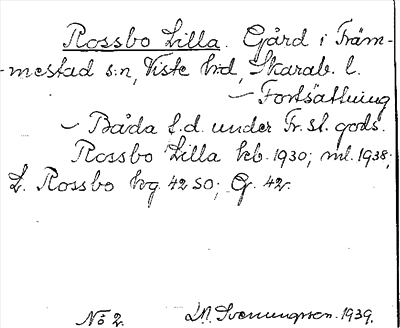 Rossbo Lilla. Gård i Främ-
mestad s:n, Viste hrd, Skarab. l.
— Fortsättning
— Båda f.d. under Fr. sl. gods.
Rossbo Lilla kb. 1930; ml. 1938;
L. Rossbo hg. 42 SO; G. 42.
No 2. D.N. Svenungsson. 1939.